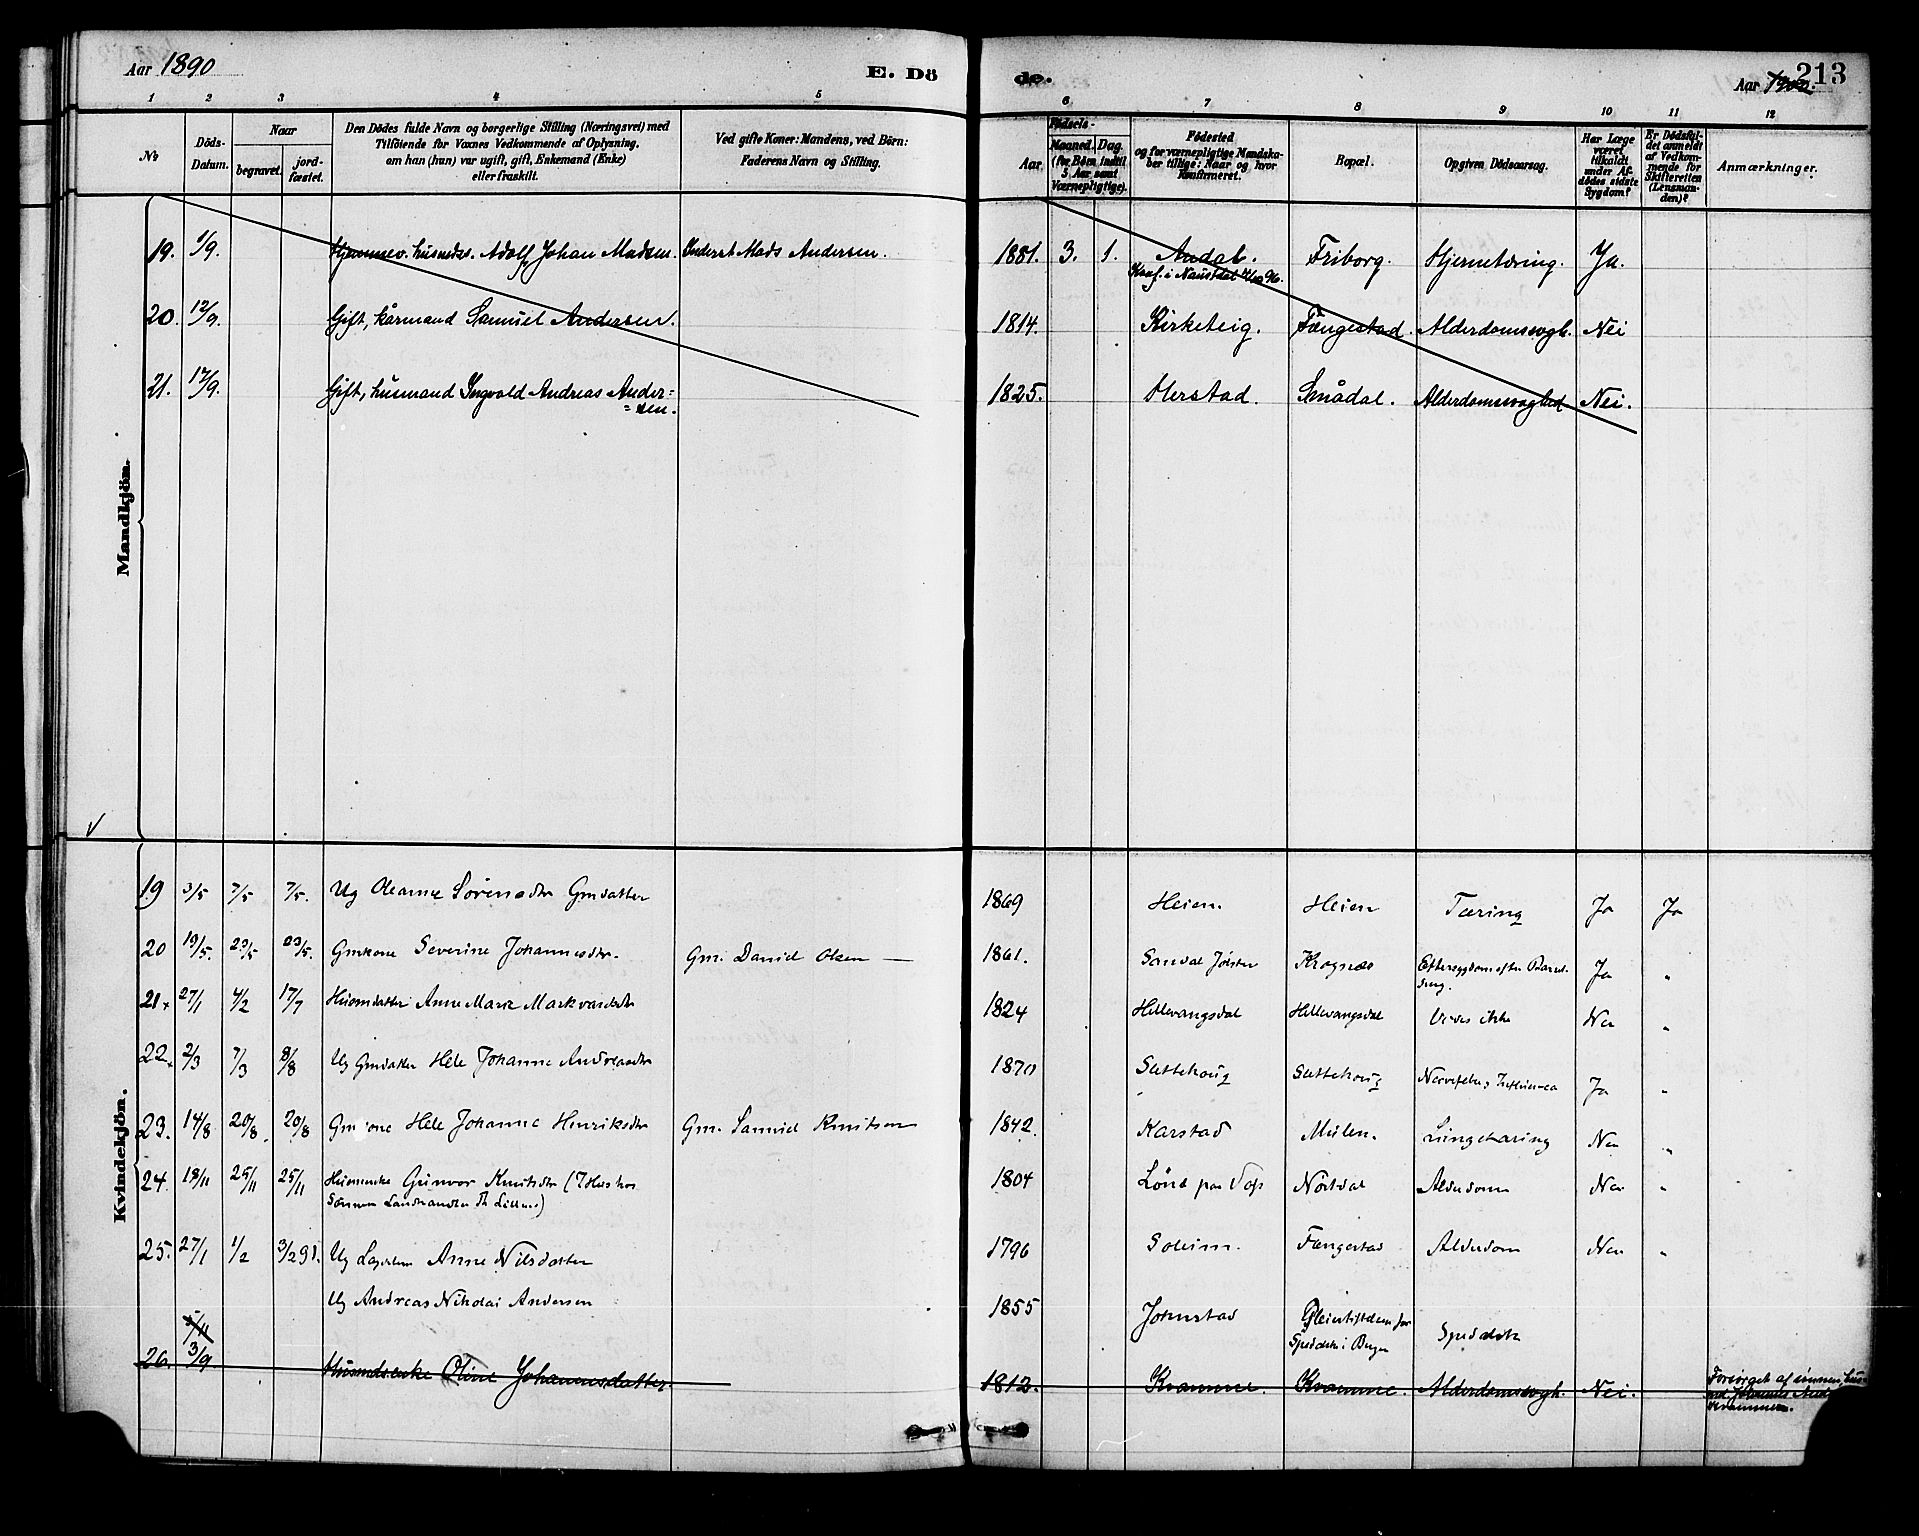 Aar 1890
E. Dö
de.
Aar 1900.
213
1 2 3 4 5 6 7 8 9 10 11 12
No
Döds-
Datum.
Naar
begravet.
jord-
fæstet.
Den Dödes fulde Navn og borgerlige Stilling (Næringsvei) med
Tilföiende for Voxnes Vedkommende af Oplysning,
om han (hun) var ugift, gift, Enkemand (Enke)
eller fraskilt.
Ved gifte Koner: Mandens, ved Börn:
Faderens Navn og Stilling.
Födsels-
Aar.
Maaned. Dag.
(for Börn indtil
5 Aar samt
Værnepligtige).
Födested
og for værnepligtige Mandska-
ber tillige: Naar og hvor
Konfirmeret.
Bopæl.
Opgiven Dödsaarsag.
Har Læge
været
tilkaldt
under Af-
dödes sidste
Sygdom?
Er Dödsfal-
det anmeldt
af Vedkom-
mende for
Skifteretten
(Lensman-
den)?
Anmærkninger.
Mandkjön.
19. 1/9. Hjemmev. husmds. Adolf Johan Madsen. Inderst Mads Andersen. 1881. 3. 1. Andal. Friborg. Hjernetæring. Ja.
Konf. i Naustdal
20. 12/9. Gift, kårmand Samuel Andersen. 1814. Kirketeig. Fængestad. Alderdomssvagh. Nei
21. 17/9. Gift, husmand Ingvold Andreas Ander= 1825. Herstad. Smådal. Alderdomssvaghed Nei.
=sen.
Kvindekjön.
19 3/5 7/5 7/5. Ug Oleanne Sörensdtr Gmdatter 1869 Heien. Heien Tæring Ja Ja
20 19/5. 23/5 23/5. Gmkone Severine Johannesdtr. Gm. Daniel Olsen — 1861. Sandal Jölster Kragnæs Eftersygdom efter Barsel- Ja "
seng.
21+ 27/1 4/2 17/7 Husmdatter Anne Marie Markvardsdtr 1824 Hellevangsdal Hellevangsdal Vides ikke Nei "
22+ 2/3 7/3 8/8 Ug Gmdatter Hele Johanne Andreasdtr 1870 Sættehoug Sættehoug Nervefeber, Influenca Ja "
23. 14/8 20/8. 20/8 Gmkone Hele Johanne Henriksdtr Gm. Samuel Knutsen 1842. Karstad Mülen. Lungetæring Nei "
24. 18/11 25/11 25/11 Husmenke Gunvor Knutsdtr (I Hus hos 1804 Lönd paa Vos Nörtdal Alderdom Nei "
Sönnen Landhandler
25. 27/1 1/2 3/2 91. Ug Anne Nilsdatter 1796 Soleim. Fængestad Alderdom Nei "
Ug Andreas Nikolai Andersen 1855 Johnstad Pleiestiftelsen for Spedalsk
Spedalske i Bergen
26. 3/9. Husmdsenke Oline Johannesdatter. 1812. Kvamme. Kvamme. Alderdomssvagh. Nei. Forsörget af sönnen, hus-